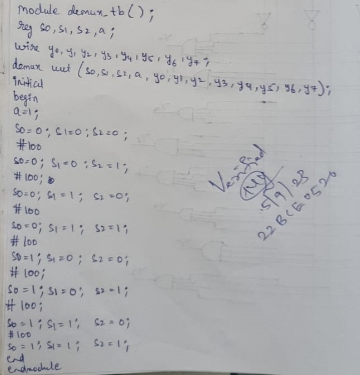 module demux_tb();
reg s0, s1, s2, a;
wire y0, y1, y2, y3, y4, y5, y6, y7;
demux uut (s0, s1, s2, a, y0, y1, y2, y3, y4, y5, y6, y7);
initial
begin
a=1;
s0=0; s1=0; s2=0;
#100
s0=0; s1=0; s2=1;
#100;
s0=0; s1=1; s2=0;
#100
s0=0; s1=1; s2=1;
#100
s0=1; s1=0; s2=0;
#100;
s0=1; s1=0; s2=1;
#100;
s0=1; s1=1; s2=0;
#100
s0=1; s1=1; s2=1;
end
endmodule
Verified
5/9/23
22BCE0526